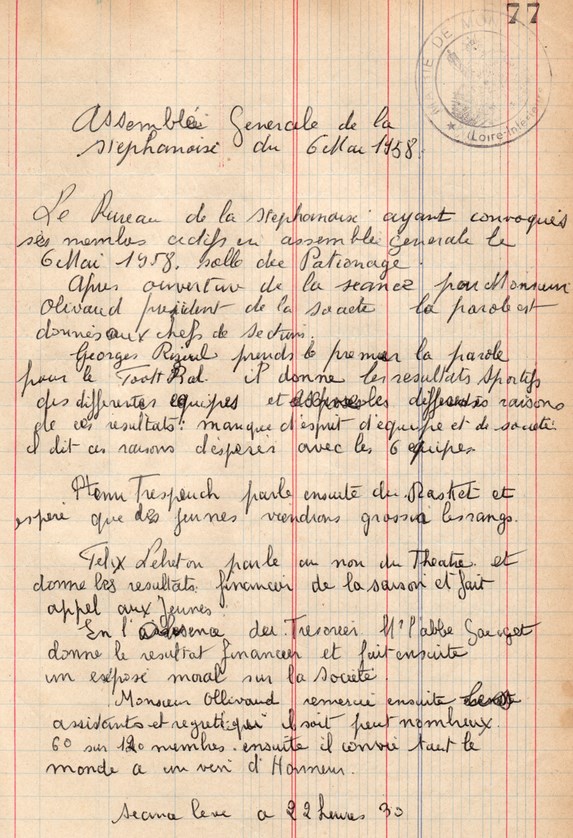 77
MAIRIE DE MON
(Loire-Inférieure)
Assemblée Generale de la
Stephanoise du 6 Mai 1958.
Le Bureau de la Stephanoise ayant convoqués
ses membres actifs en assemblé generale le
6 Mai 1958. salle du Patronage.
Apres ouverture de la seance par Monsieur
Olivaud president de la societe la parole est
donnés aux chefs de section.
Georges prends le premier la parole
pour le Foott Bal. il donne les resultats sportifs
des differentes equipes et les differentes raisons
de ces resultats: manque d'esprit d'equipe et de societé
il dit ces raisons d'esperes avec les 6 equipes
Henri Trespeuch parle ensuite du Basket et
espere que des jeunes viendrons grossir les rangs.
Felix Lehebon parle au non du Theatre et
donne les resultats financier de la saison et fait
appel aux Jeunes
En l'absence du Tresorier Mr l'abbe
donne le resultat financier et fait ensuite
un exposé moral sur la Société.
Monsieur Ollivaud remercie ensuite les
assistants et regrette qu'il soit peut nombreux.
60 sur 120 membres. ensuite il convie tout le
monde a un vin d'Honneur.
Seance leve a 22 heures 30